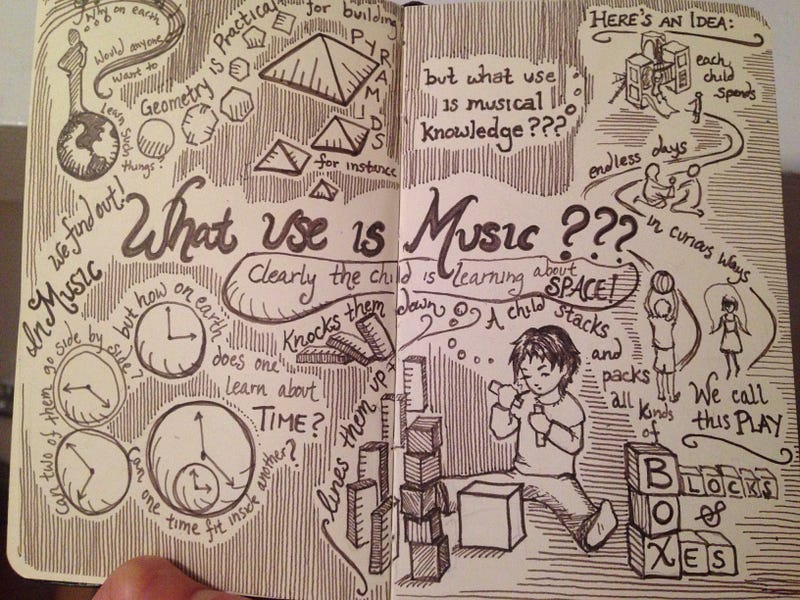 What use is Music ???
Why on earth
Would anyone
want to
Learn Such
things?
Geometry is Practical
for building
PYRAMIDS
for instance
but what use
is musical
knowledge???
HERE'S AN IDEA:
each
child
spends
endless days
in curious ways
We call
this PLAY
A child stacks
and
packs
all kinds
of
BLOCKS
&
BOXES
lines them up
Knocks them
down
Clearly the child is learning about
SPACE!
but how on earth
does one
learn about
TIME?
Can one time fit inside another?
can two of them go side by side?
In Music
we find out!